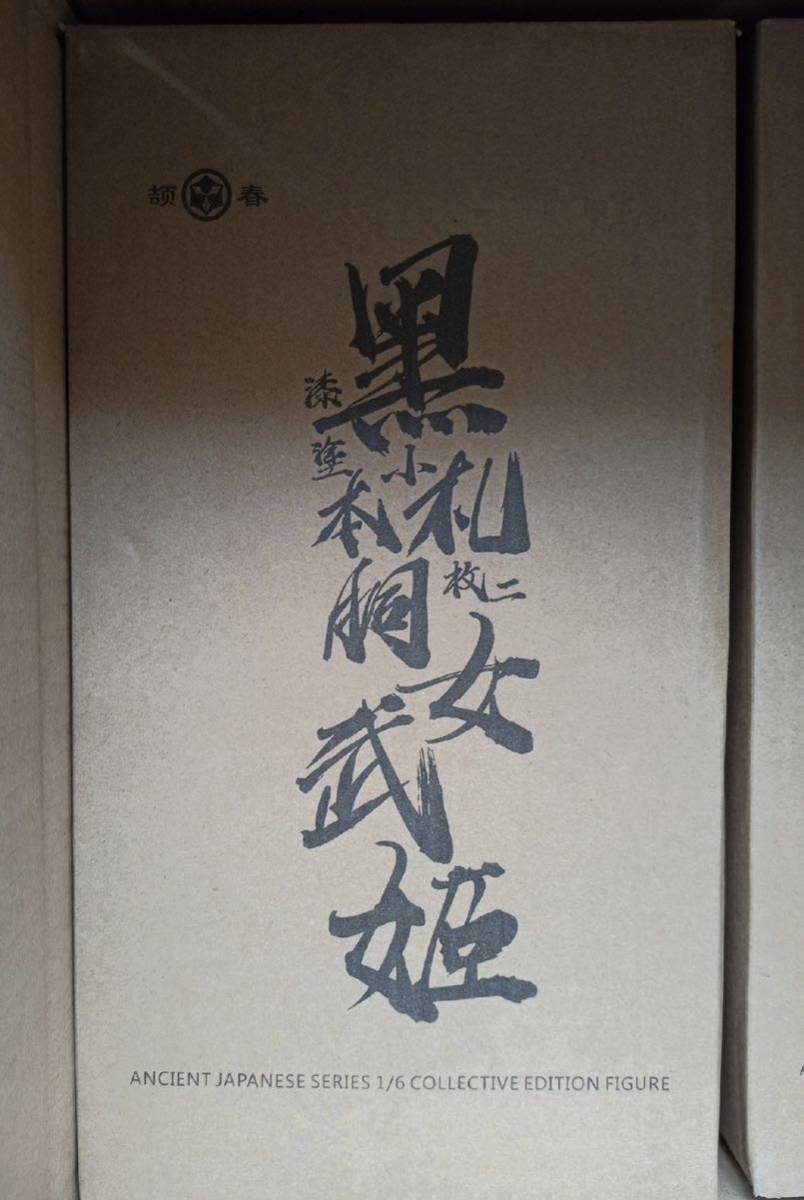 颉春
黑
漆塗
本小札
二枚胴
女
武
姬
ANCIENT JAPANESE SERIES 1/6 COLLECTIVE EDITION FIGURE